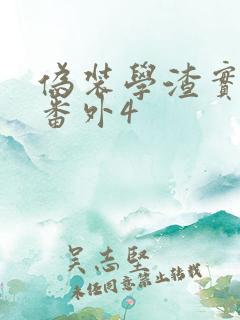 偽裝學渣實
番外4
吴志堅
未经同意禁止转载